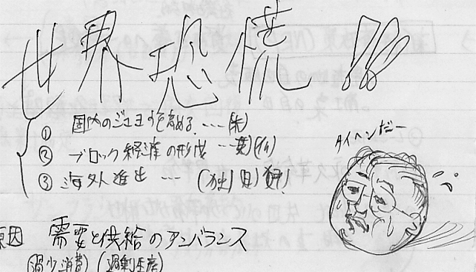 世界恐慌!!!
① 国内のジュヨウを高める ……(米)
② ブロック経済の形成 …英)(仏)
③ 海外進出 …… (独)(日)(伊)
タイヘンだー
原因 需要と供給のアンバランス
(過少消費)(過剰生産)